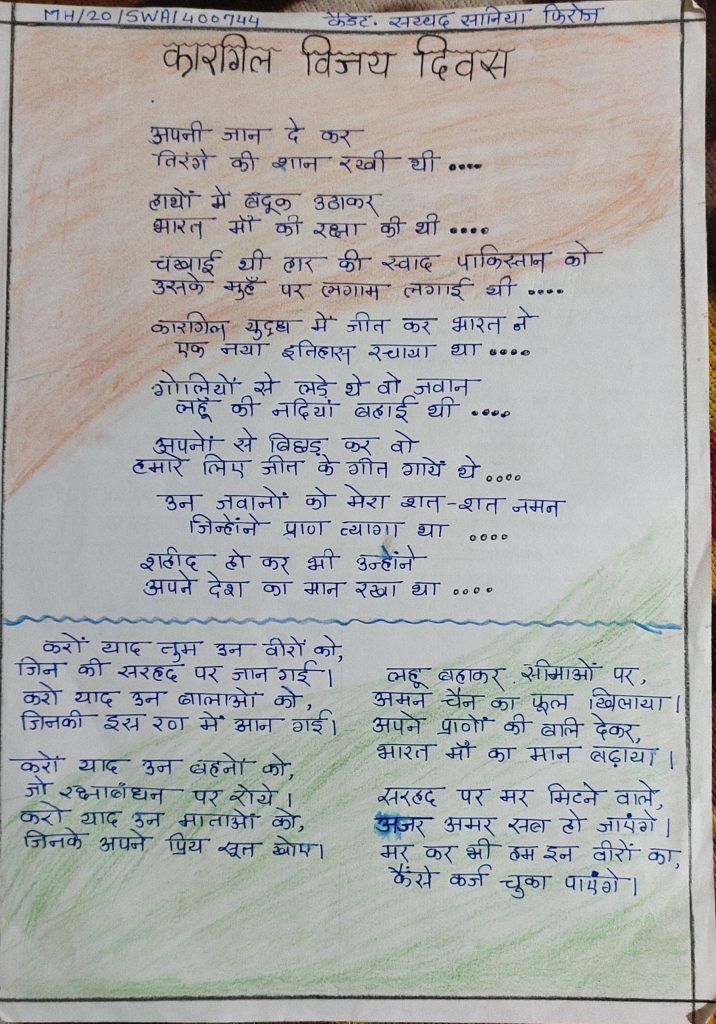 MH/20/SWA/400744 कॅडेट. सय्यद सानिया फिरोज
कारगिल विजय दिवस
अपनी जान दे कर
तिरंगे की शान रखी थी ....
हाथों में बंदूक उठाकर
भारत माँ की रक्षा की थी ....
चख्खाई थी हार की स्वाद पाकिस्तान को
उसके मुहँ पर लगाम लगाई थी ....
कारगिल युद्ध में जीत कर भारत ने
एक नया इतिहास रचाया था ....
गोलियों से लड़े थे वो जवान
लहूँ की नदियां बहाई थी ....
अपनों से बिछड़ कर वो
हमारे लिए जीत के गीत गायें थे ....
उन जवानों को मेरा शत-शत नमन
जिन्होंने प्राण त्यागा था ....
शहीद हो कर भी उन्होंने
अपने देश का मान रखा था ....
करों याद तुम उन वीरों को,
जिन की सरहद पर जान गई।
करो याद उन बालाओं को,
जिनकी इस रण में आन गई।
करों याद उन बहनों को,
जो रक्षाबंधन पर रोये।
करो याद उन माताओं को,
जिनके अपने प्रिय सून खोए।
लहू बहाकर सीमाओं पर,
अमन चैन का फूल खिलाया।
अपने प्राणों की बलि देकर,
भारत माँ का मान बढ़ाया।
सरहद पर मर मिटने वाले,
अजर अमर सब हो जाएंगे।
मर कर भी हम इन वीरों का,
कैसे कर्ज चुका पाएंगे।